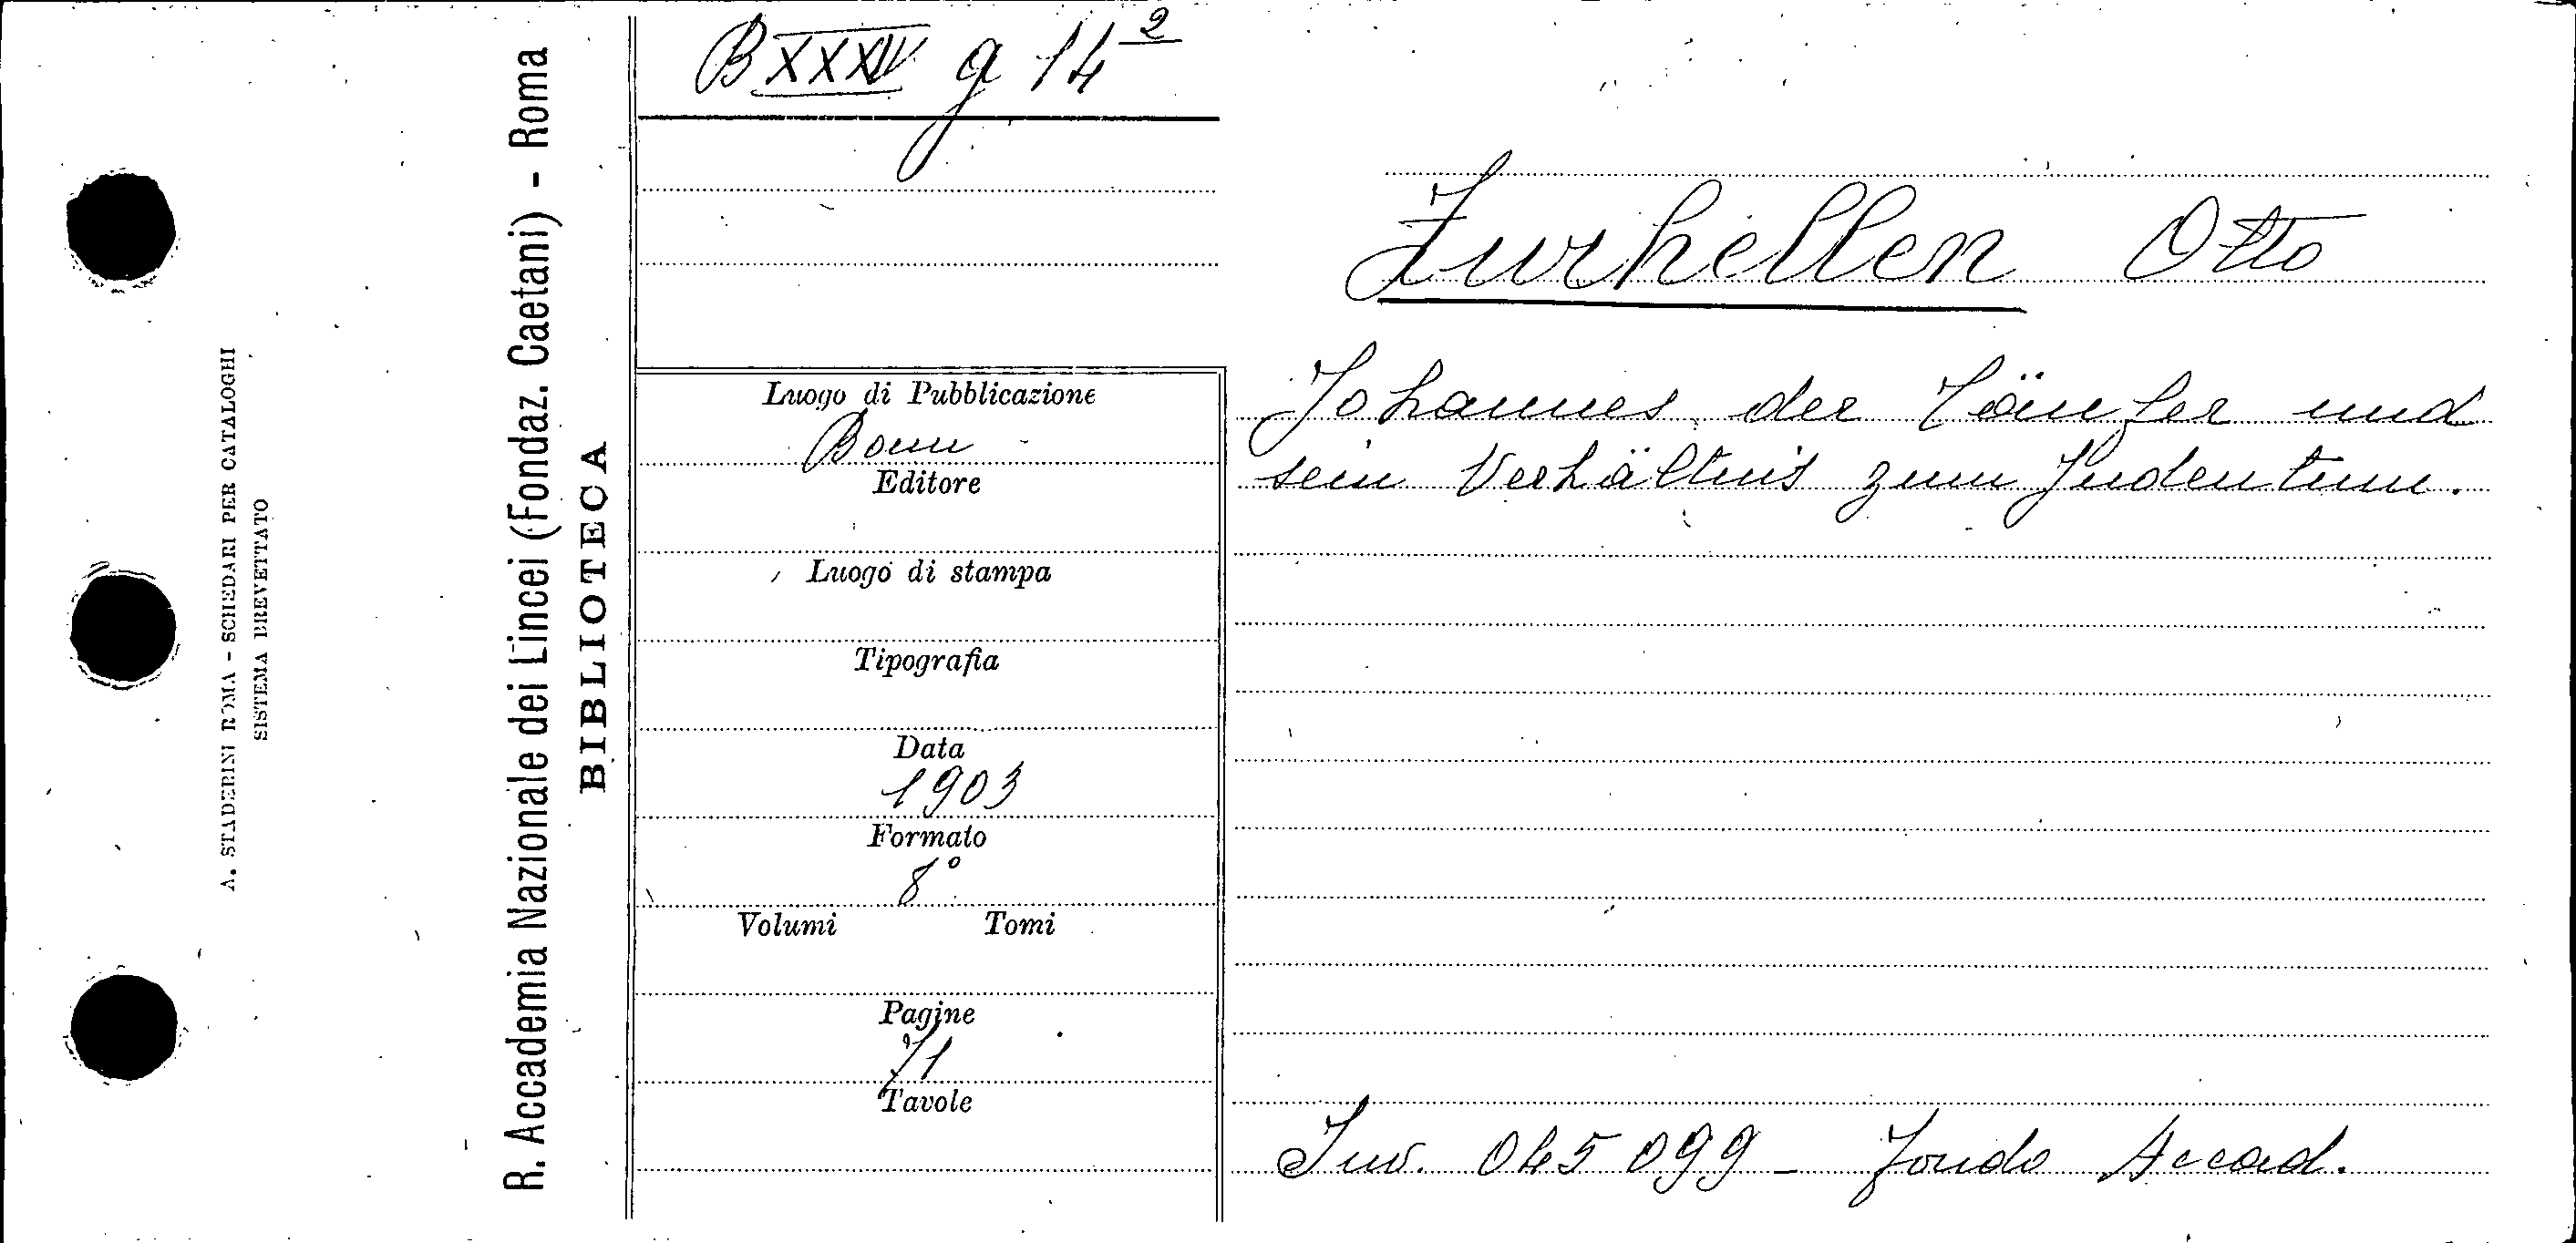 B XXXIV g 14²
Zurhellen Otto
Johannes der Täufer und
sein Verhältnis zum Judentum.
Luogo di Pubblicazione
Bonn
Editore
Luogo di stampa
Tipografia
Data
1903
Formato
8°
Volumi Tomi
Pagine
71
Tavole
Inv. 045099 - Fondo Accad.
R. Accademia Nazionale dei Lincei (Fondaz. Caetani) - Roma
BIBLIOTECA
A. STADERINI ROMA - SCHEDARI PER CATALOGHI
SISTEMA BREVETTATO